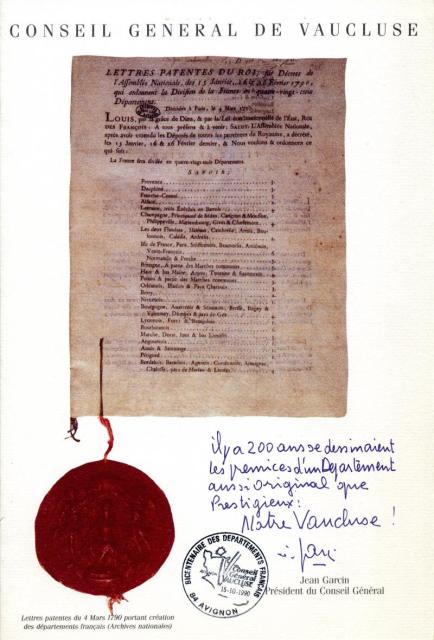 CONSEIL GENERAL DE VAUCLUSE
LETTRES PATENTES DU ROI, sur Décret de
l'Assemblée Nationale, des 15 Janvier, 16 & 26 Février 1790,
qui ordonnent la Division de la France en quatre-vingt-trois
Départemens.
Données à Paris, le 4 Mars 1790.
LOUIS, par la grâce de Dieu, & par la Loi constitutionnelle de l'État, ROI
DES FRANÇOIS: A tous présens & à venir; SALUT. L'Assemblée Nationale,
après avoir entendu les Députés de toutes les parties du Royaume, a décrété,
les 15 Janvier, 16 & 26 Février dernier, & Nous voulons & ordonnons ce
qui suit:
La France sera divisée en quatre-vingt-trois Départemens
SAVOIR;
Provence
Dauphiné
Franche-Comté
Alsace
Lorraine, trois Évêchés & Barrois
Champagne, Principauté de Sédan, Carignan & Mouzon,
Philippeville, Mariembourg, Givet & Charlemont
Les deux Flandres, Hainaut, Cambrésis, Artois, Boulonnois, Calaisis, Ardrésis
Isle de France, Paris, Soissonnois, Beauvoisis, Amiénois,
Vexin-François
Normandie & Perche
Bretagne, & partie des Marches communes
Haut & bas Maine, Anjou, Touraine & Saumurois
Poitou & partie des Marches communes
Orléanois, Blaisois & Pays Chartrain
Berry
Nivernois
Bourgogne, Auxerrois & Sénonois, Bresse, Bugey &
Valromey, Dombes & pays de Gex
Lyonnois, Forez & Beaujolois
Bourbonnois
Marche, Dorat, haut & bas Limosin
Angoumois
Aunis & Saintonge
Périgord
Bordelois, Bazadois, Agénois, Condomois, Armagnac,
Chalosse, pays de Marsan & Landes
il y a 200 ans se dessinaient
les prémices d'un Département
aussi original que
Prestigieux:
Notre Vaucluse!
BICENTENAIRE DES DEPARTEMENTS FRANÇAIS
Conseil
Général
VAUCLUSE
15-10-1990
84 AVIGNON
Jean Garcin
Président du Conseil Général
Lettres patentes du 4 Mars 1790 portant création
des départements français (Archives nationales)